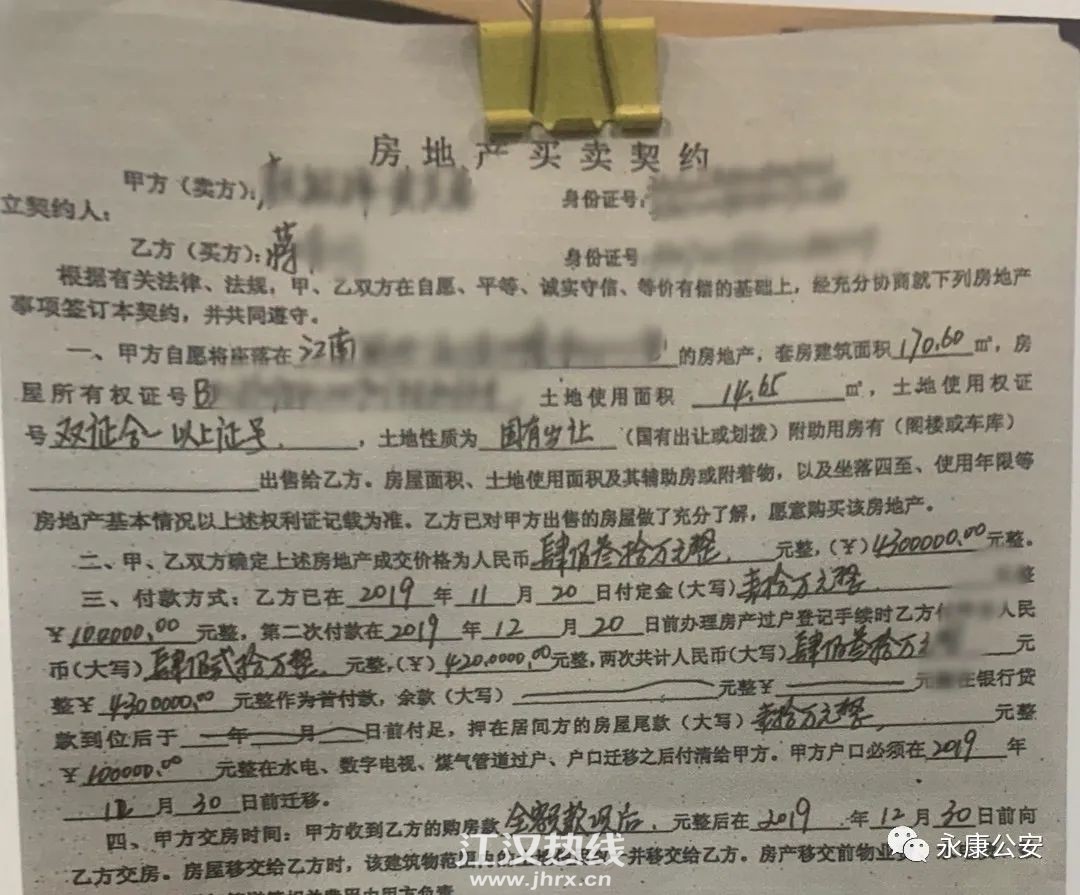 房地产买卖契约
甲方（卖方）： 身份证号：
立契约人：
乙方（买方）：蒋 身份证号
根据有关法律、法规，甲、乙双方在自愿、平等、诚实守信、等价有偿的基础上，经充分协商就下列房地产
事项签订本契约，并共同遵守。
一、甲方自愿将座落在江南 的房地产，套房建筑面积170.60㎡，房
屋所有权证号B 土地使用面积 14.65 ㎡，土地使用权证
号双证合一以上证号，土地性质为 国有出让 （国有出让或划拨）附助用房有（阁楼或车库）
出售给乙方。房屋面积、土地使用面积及其辅助房或附着物，以及坐落四至、使用年限等
房地产基本情况以上述权利证记载为准。乙方已对甲方出售的房屋做了充分了解，愿意购买该房地产。
二、甲、乙双方确定上述房地产成交价格为人民币肆佰叁拾万元整 元整，（￥）4300000.00元整。
三、付款方式：乙方已在 2019 年 11 月 20 日付定金（大写）壹拾万元整 整
￥100000.00 元整，第二次付款在2019 年 12 月 20 日前办理房产过户登记手续时乙方付 人民
币（大写）肆佰贰拾万整 元整，（￥）4200000.00元整，两次共计人民币（大写）肆佰叁拾万元 元
整￥4300000.00 元整作为首付款，余款（大写） 元整￥ 元 在银行贷
款到位后于 年 月 日前付足，押在居间方的房屋尾款（大写）壹拾万元整 元整
￥100000.00 元整在水电、数字电视、煤气管道过户、户口迁移之后付清给甲方。甲方户口必须在2019 年
12 月 30 日前迁移。
四、甲方交房时间：甲方收到乙方的购房款全额款项后，元整后在 2019 年 12 月 30 日前向
乙方交房。房屋移交给乙方时，该建筑物范 并移交给乙方。房产移交前物业
江汉热线
www.jhrx.cn
永康公安